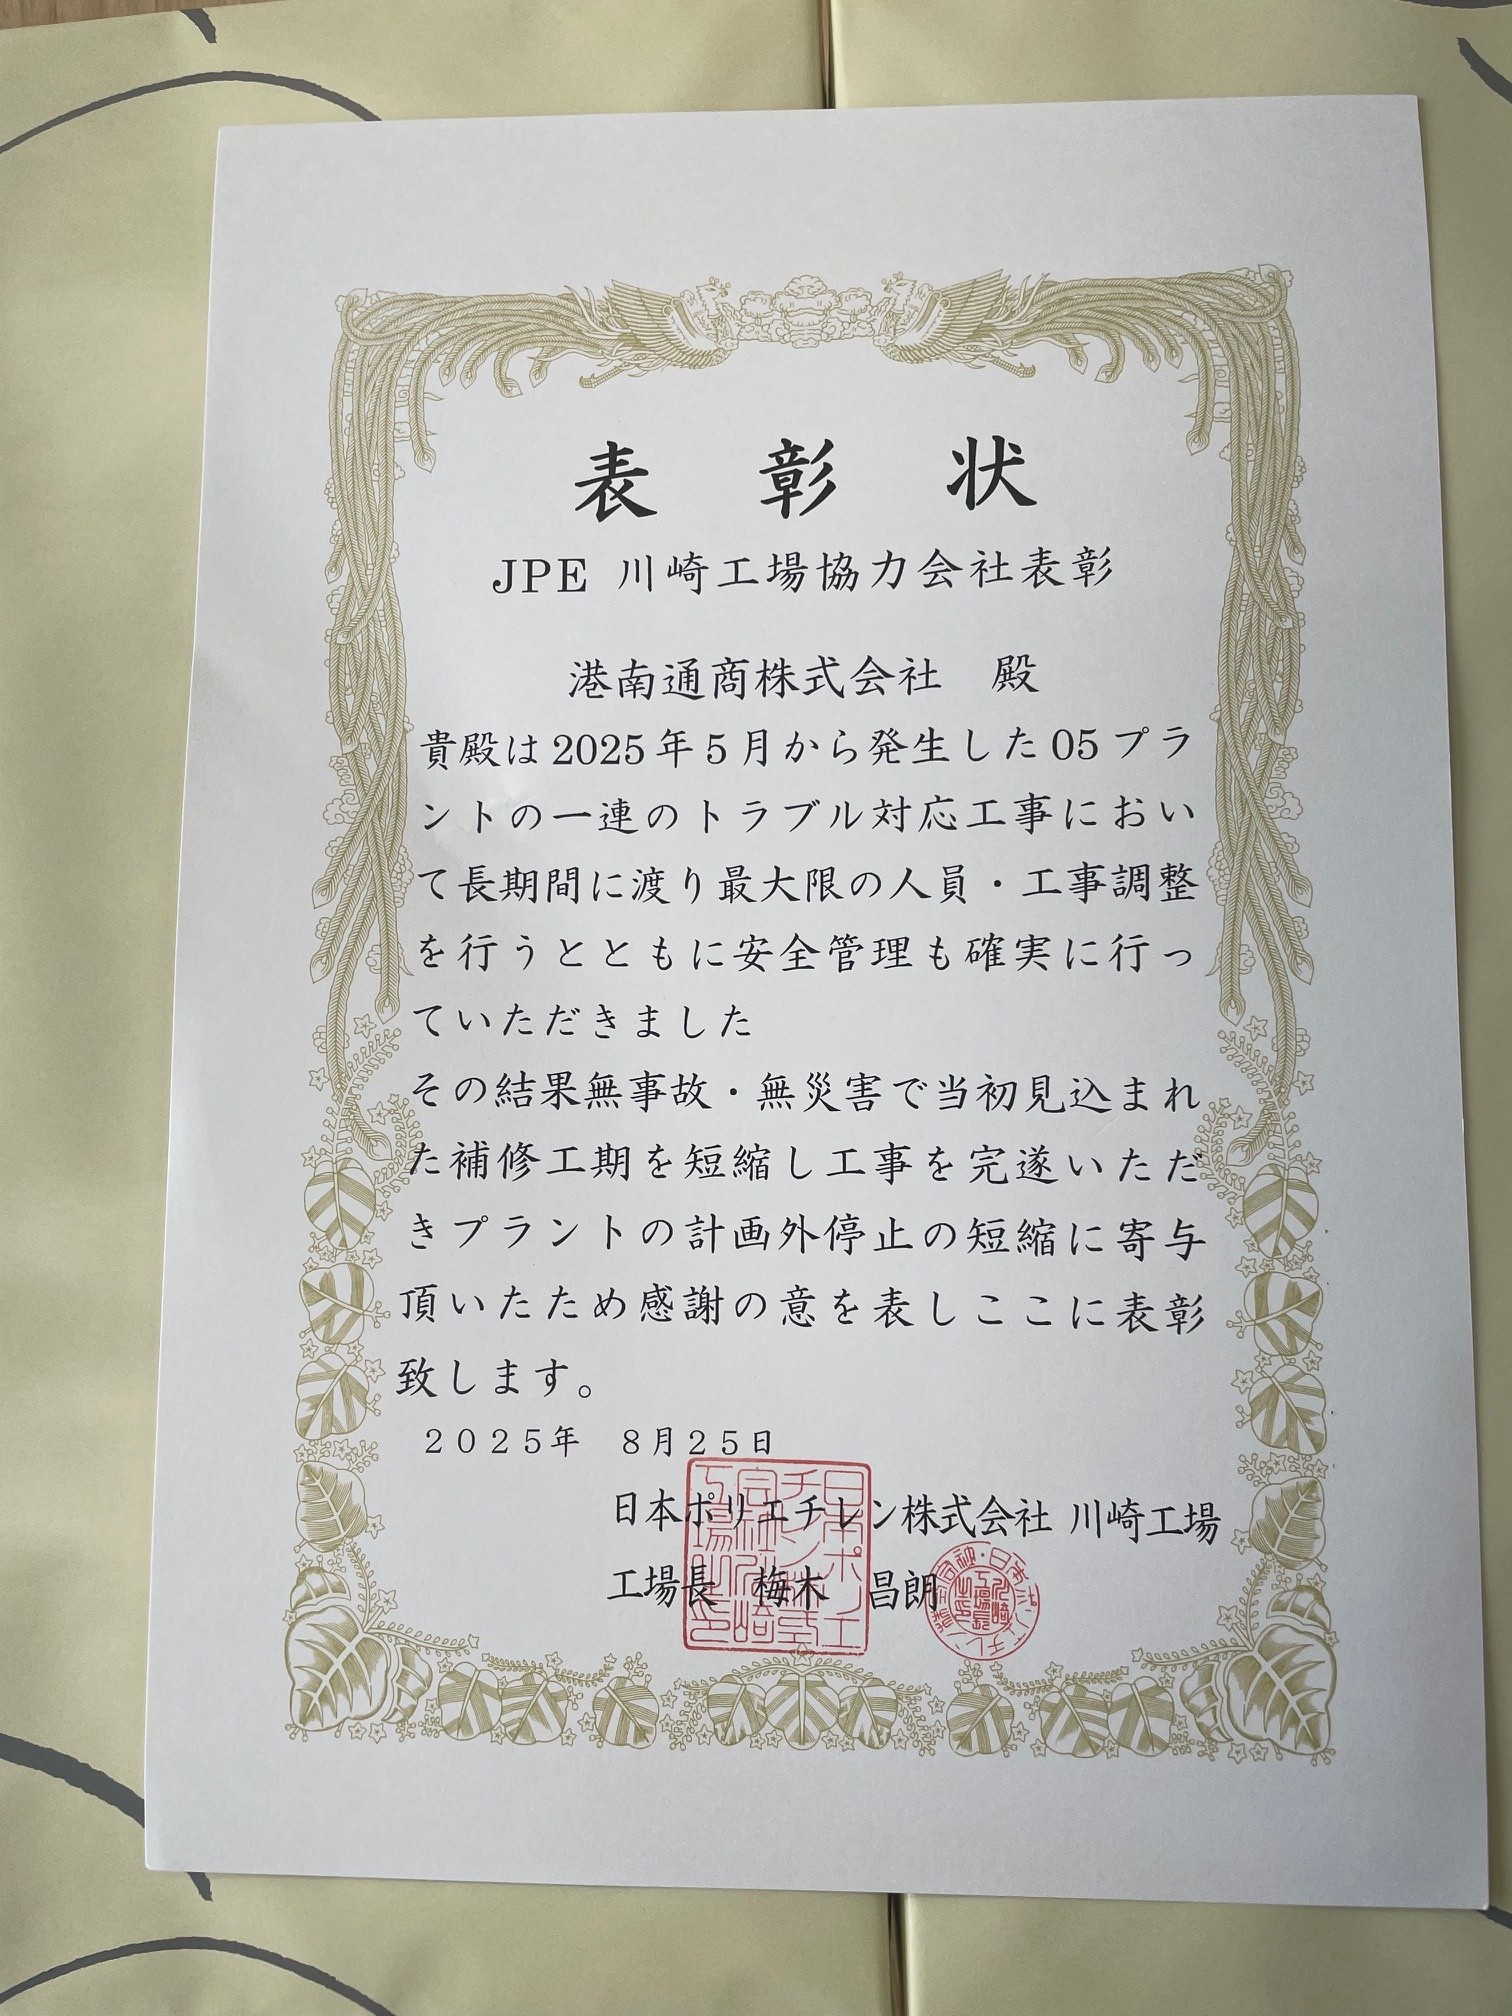 表彰状
JPE 川崎工場協力会社表彰
港南通商株式会社 殿
貴殿は2025年5月から発生した05プラ
ントの一連のトラブル対応工事におい
て長期間に渡り最大限の人員・工事調整
を行うとともに安全管理も確実に行っ
ていただきました
その結果無事故・無災害で当初見込まれ
た補修工期を短縮し工事を完遂いただ
きプラントの計画外停止の短縮に寄与
頂いたため感謝の意を表しここに表彰
致します。
2025年 8月25日
日本ポリエチレン株式会社 川崎工場
工場長 梅木 昌朗